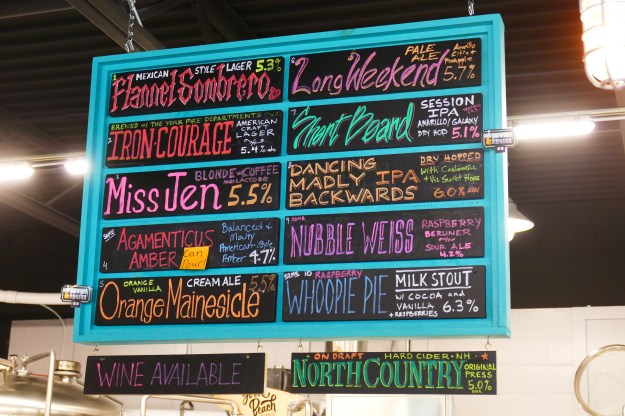 1 MEXICAN STYLE LAGER 5.3%
Flannel Sombrero
BREWED w/ THE YORK FIRE DEPARTMENTS
2 IRON COURAGE
AMERICAN
CRAFT
LAGER
5.4%
3 BLONDE w/ COFFEE
AND LACTOSE
Miss Jen 5.5%
4 AGAMENTICUS
AMBER
Can
Pour
Balanced &
Malty
American-Style
Amber 4.7%
5 ORANGE
VANILLA
CREAM ALE 5.5%
Orange Mainesicle
6 Long Weekend
PALE
ALE
Amarillo
Citra +
5.7%
7 Short Board
SESSION
IPA
AMARILLO/GALAXY
DRY HOP 5.1%
8 DANCING
MADLY IPA
BACKWARDS
DRY HOPPED
With Centennial
+ Vic Secret Hops
6.0% ABV
9 NUBBLE WEISS
RASPBERRY
BERLINER
SOUR ALE
4.2%
10 RASPBERRY
WHOOPIE PIE
MILK STOUT
w/ COCOA and
VANILLA
+ RASPBERRIES 6.3%
WINE AVAILABLE
ON DRAFT HARD CIDER · NH
NORTH COUNTRY
ORIGINAL
PRESS
5.0%
Peach